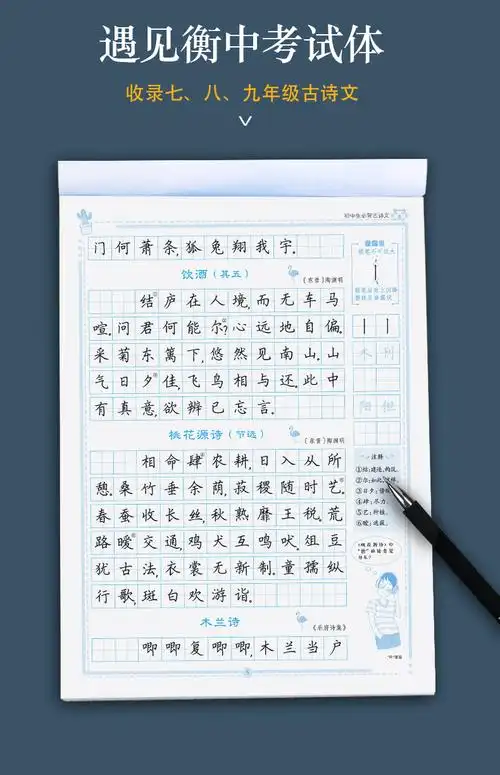 遇见衡中考试体
收录七、八、九年级古诗文
初中生必背古诗文
门何萧条,狐兔翔我宇.
饮酒(其五)
(东晋)陶渊明
结庐在人境,而无车马
喧.问君何能尔?心远地自偏.
采菊东篱下,悠然见南山.山
气日夕佳,飞鸟相与还.此中
有真意,欲辨已忘言.
木 刑
阳 但
桃花源诗(节选)
(东晋)陶渊明
相命肆农耕,日入从所
憩.桑竹垂余荫,菽稷随时艺.
春蚕收长丝,秋熟靡王税.荒
路暧交通,鸡犬互鸣吠.俎豆
犹古法,衣裳无新制.童孺纵
行歌,斑白欢游诣.
注释
①结:建造,构筑.
②尔:如此,这样.
③日夕:傍晚.
④肆:尽力.
⑤艺:种植.
⑥暧:遮蔽.
木兰诗
《乐府诗集》
唧唧复唧唧,木兰当户
5